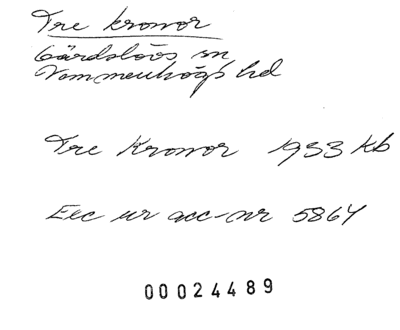 Tre kronor
Gärdslövs sn
Vemmenhögs hd
Tre Kronor 1933 kb
Exc ur acc-nr 5864
00024489